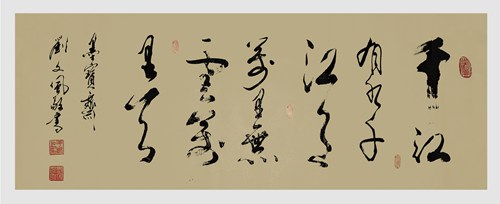 千江
有水千
江月
萬里無
雲萬
里天
墨寶齋
劉文鳳敬書